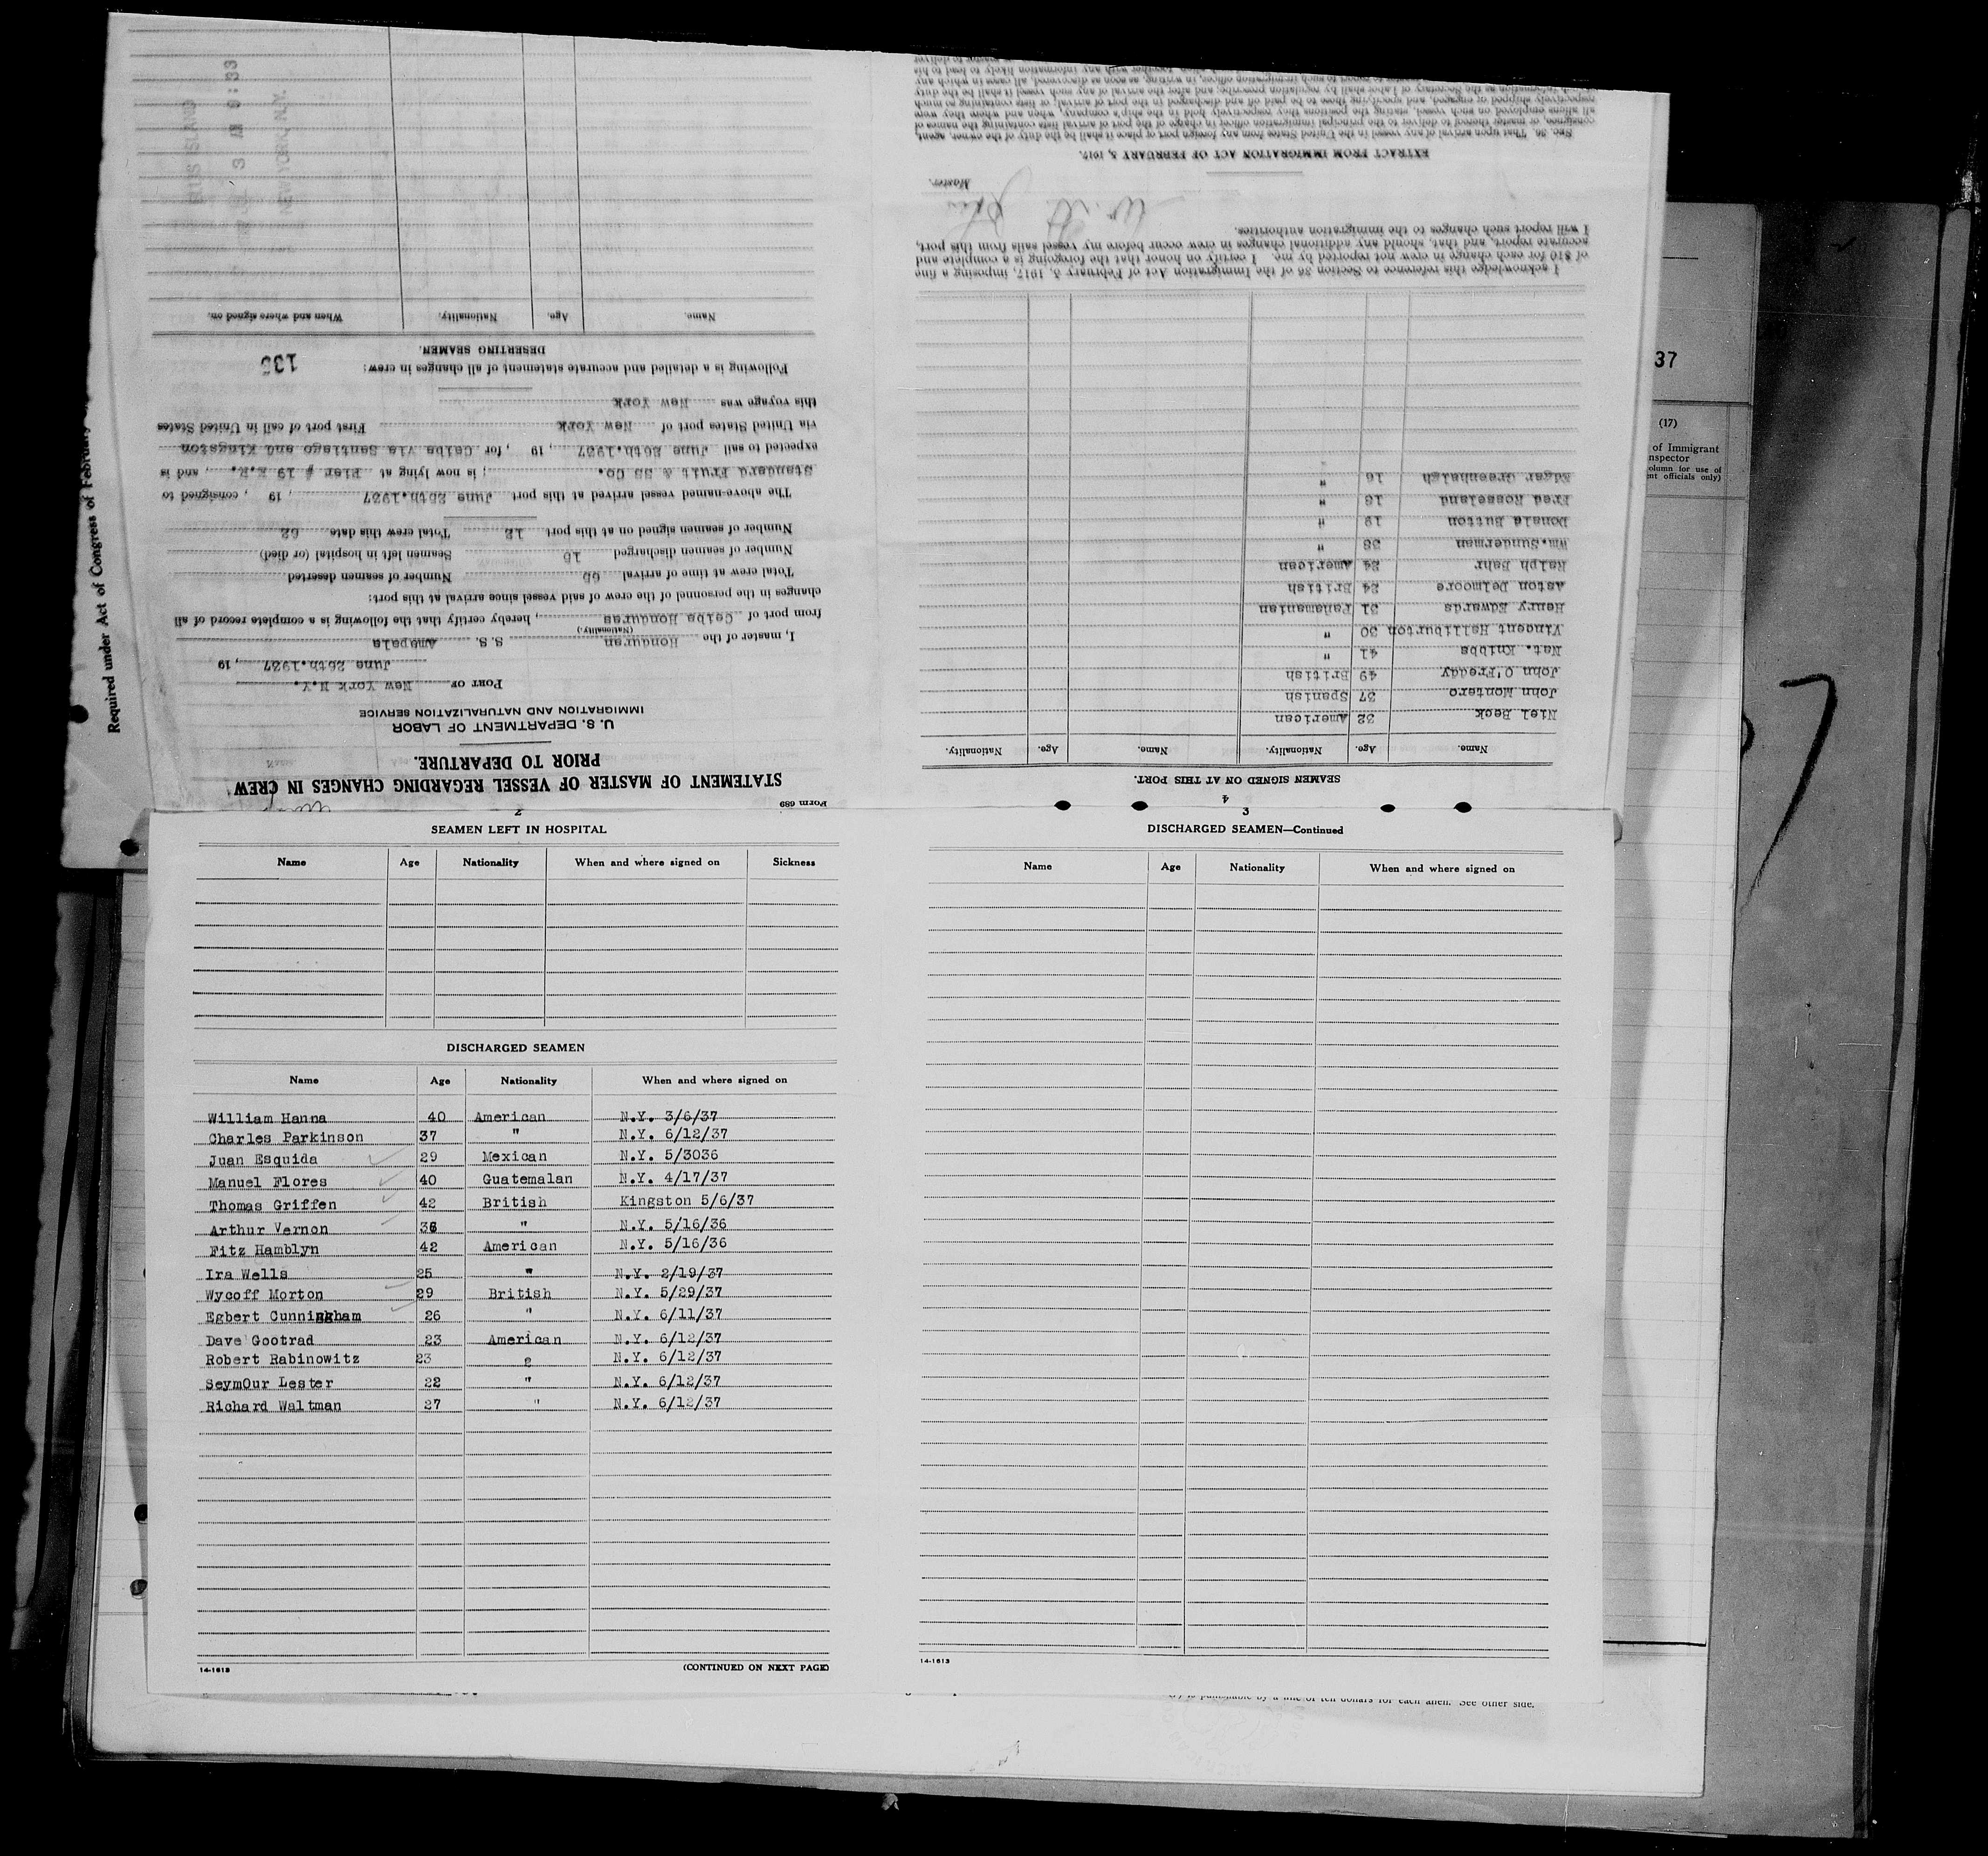 Form 689
STATEMENT OF MASTER OF VESSEL REGARDING CHANGES IN CREW
PRIOR TO DEPARTURE.
U. S. DEPARTMENT OF LABOR
IMMIGRATION AND NATURALIZATION SERVICE
PORT OF New York N.Y.
June 26th.1937, 19
I, master of the Honduran S. S. Amapala
(Nationality.)
from port of Ceiba Honduras, hereby certify that the following is a complete record of all
changes in the personnel of the crew of said vessel since arrival at this port:
Total crew at time of arrival 65 Number of seamen deserted
Number of seamen discharged 15 Seamen left in hospital (or died)
Number of seamen signed on at this port 12 Total crew this date 62
The above-named vessel arrived at this port June 25th.1937, 19 , consigned to
Standard Fruit & SS Co. ; is now lying at Pier # 19 E.R. , and is
expected to sail June 26th.1937 , 19 , for Ceiba via Santiago and Kingston
via United States port of New York First port of call in United States
this voyage was New York
Following is a detailed and accurate statement of all changes in crew:
DESERTING SEAMEN.
Name. Age. Nationality. When and where signed on.
ELLIS ISLAND
NEW YORK, N.Y.
4
SEAMEN SIGNED ON AT THIS PORT.
Name. Age. Nationality. Name. Age. Nationality.
Niel Beck 32 American
John Montero 37 Spanish
John O'Freddy 49 British
Nat. Knibbs 41 "
Vincent Halliburton 30 "
Henry Edwards 31 Panamanian
Aston Delmoore 24 British
Ralph Bahr 24 American
Wm.Sunderman 38 "
Donald Button 19 "
Fred Rosseland 18 "
Edgar Greenhalgh 16 "
I acknowledge this reference to Section 36 of the Immigration Act of February 5, 1917, imposing a fine
of $10 for each change in crew not reported by me. I certify on honor that the foregoing is a complete and
accurate report, and that, should any additional changes in crew occur before my vessel sails from this port,
I will report such changes to the immigration authorities.
Master.
EXTRACT FROM IMMIGRATION ACT OF FEBRUARY 5, 1917.
Sec. 36. That upon arrival of any vessel in the United States from any foreign port or place it shall be the duty of the owner, agent,
consignee, or master thereof to deliver to the principal immigration officer in charge of the port of arrival lists containing the names of
all aliens employed on such vessel, stating the positions they respectively hold in the ship's company, when and where they were
respectively shipped or engaged, and specifying those to be paid off and discharged in the port of arrival; or lists containing so much
such information as the Secretary of Labor shall by regulation prescribe; and after the arrival of any such vessel it shall be the duty
to report to such immigration officer, in writing, as soon as discovered, all cases in which any
together with any information likely to lead to his
Required under Act of Congress of February
37
(17)
of Immigrant
Inspector
column for use of
officials only)
2
SEAMEN LEFT IN HOSPITAL
Name Age Nationality When and where signed on Sickness
DISCHARGED SEAMEN
Name Age Nationality When and where signed on
William Hanna 40 American N.Y. 3/6/37
Charles Parkinson 37 " N.Y. 6/12/37
Juan Esquida 29 Mexican N.Y. 5/3036
Manuel Flores 40 Guatemalan N.Y. 4/17/37
Thomas Griffen 42 British Kingston 5/6/37
Arthur Vernon 36 " N.Y. 5/16/36
Fitz Hamblyn 42 American N.Y. 5/16/36
Ira Wells 25 " N.Y. 2/19/37
Wycoff Morton 29 British N.Y. 5/29/37
Egbert Cunningham 26 " N.Y. 6/11/37
Dave Gootrad 23 American N.Y. 6/12/37
Robert Rabinowitz 23 " N.Y. 6/12/37
SeymOur Lester 22 " N.Y. 6/12/37
Richard Waltman 27 " N.Y. 6/12/37
14-1613 (CONTINUED ON NEXT PAGE)
3
DISCHARGED SEAMEN—Continued
Name Age Nationality When and where signed on
14-1613
is punishable by a fine of ten dollars for each alien. See other side.